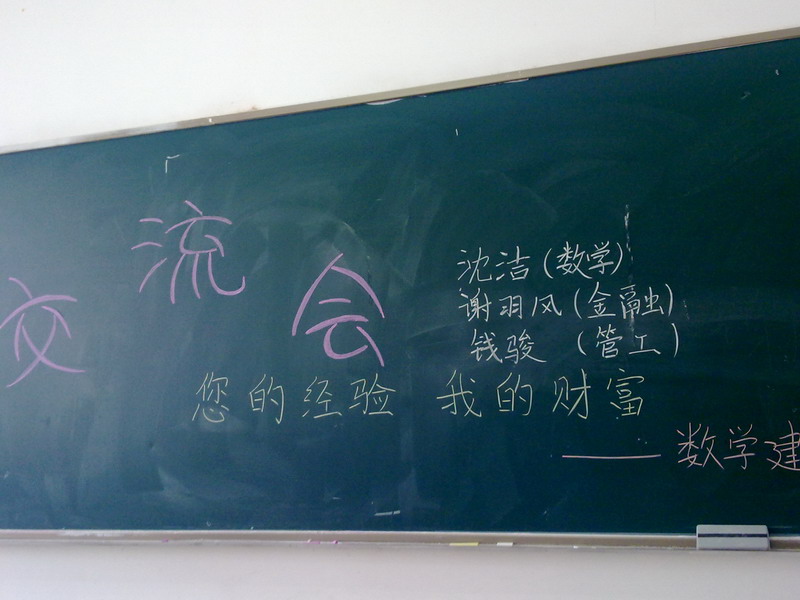 交流会
沈洁(数学)
谢羽风(金融)
钱骏 (管工)
您的经验 我的财富
——数学建